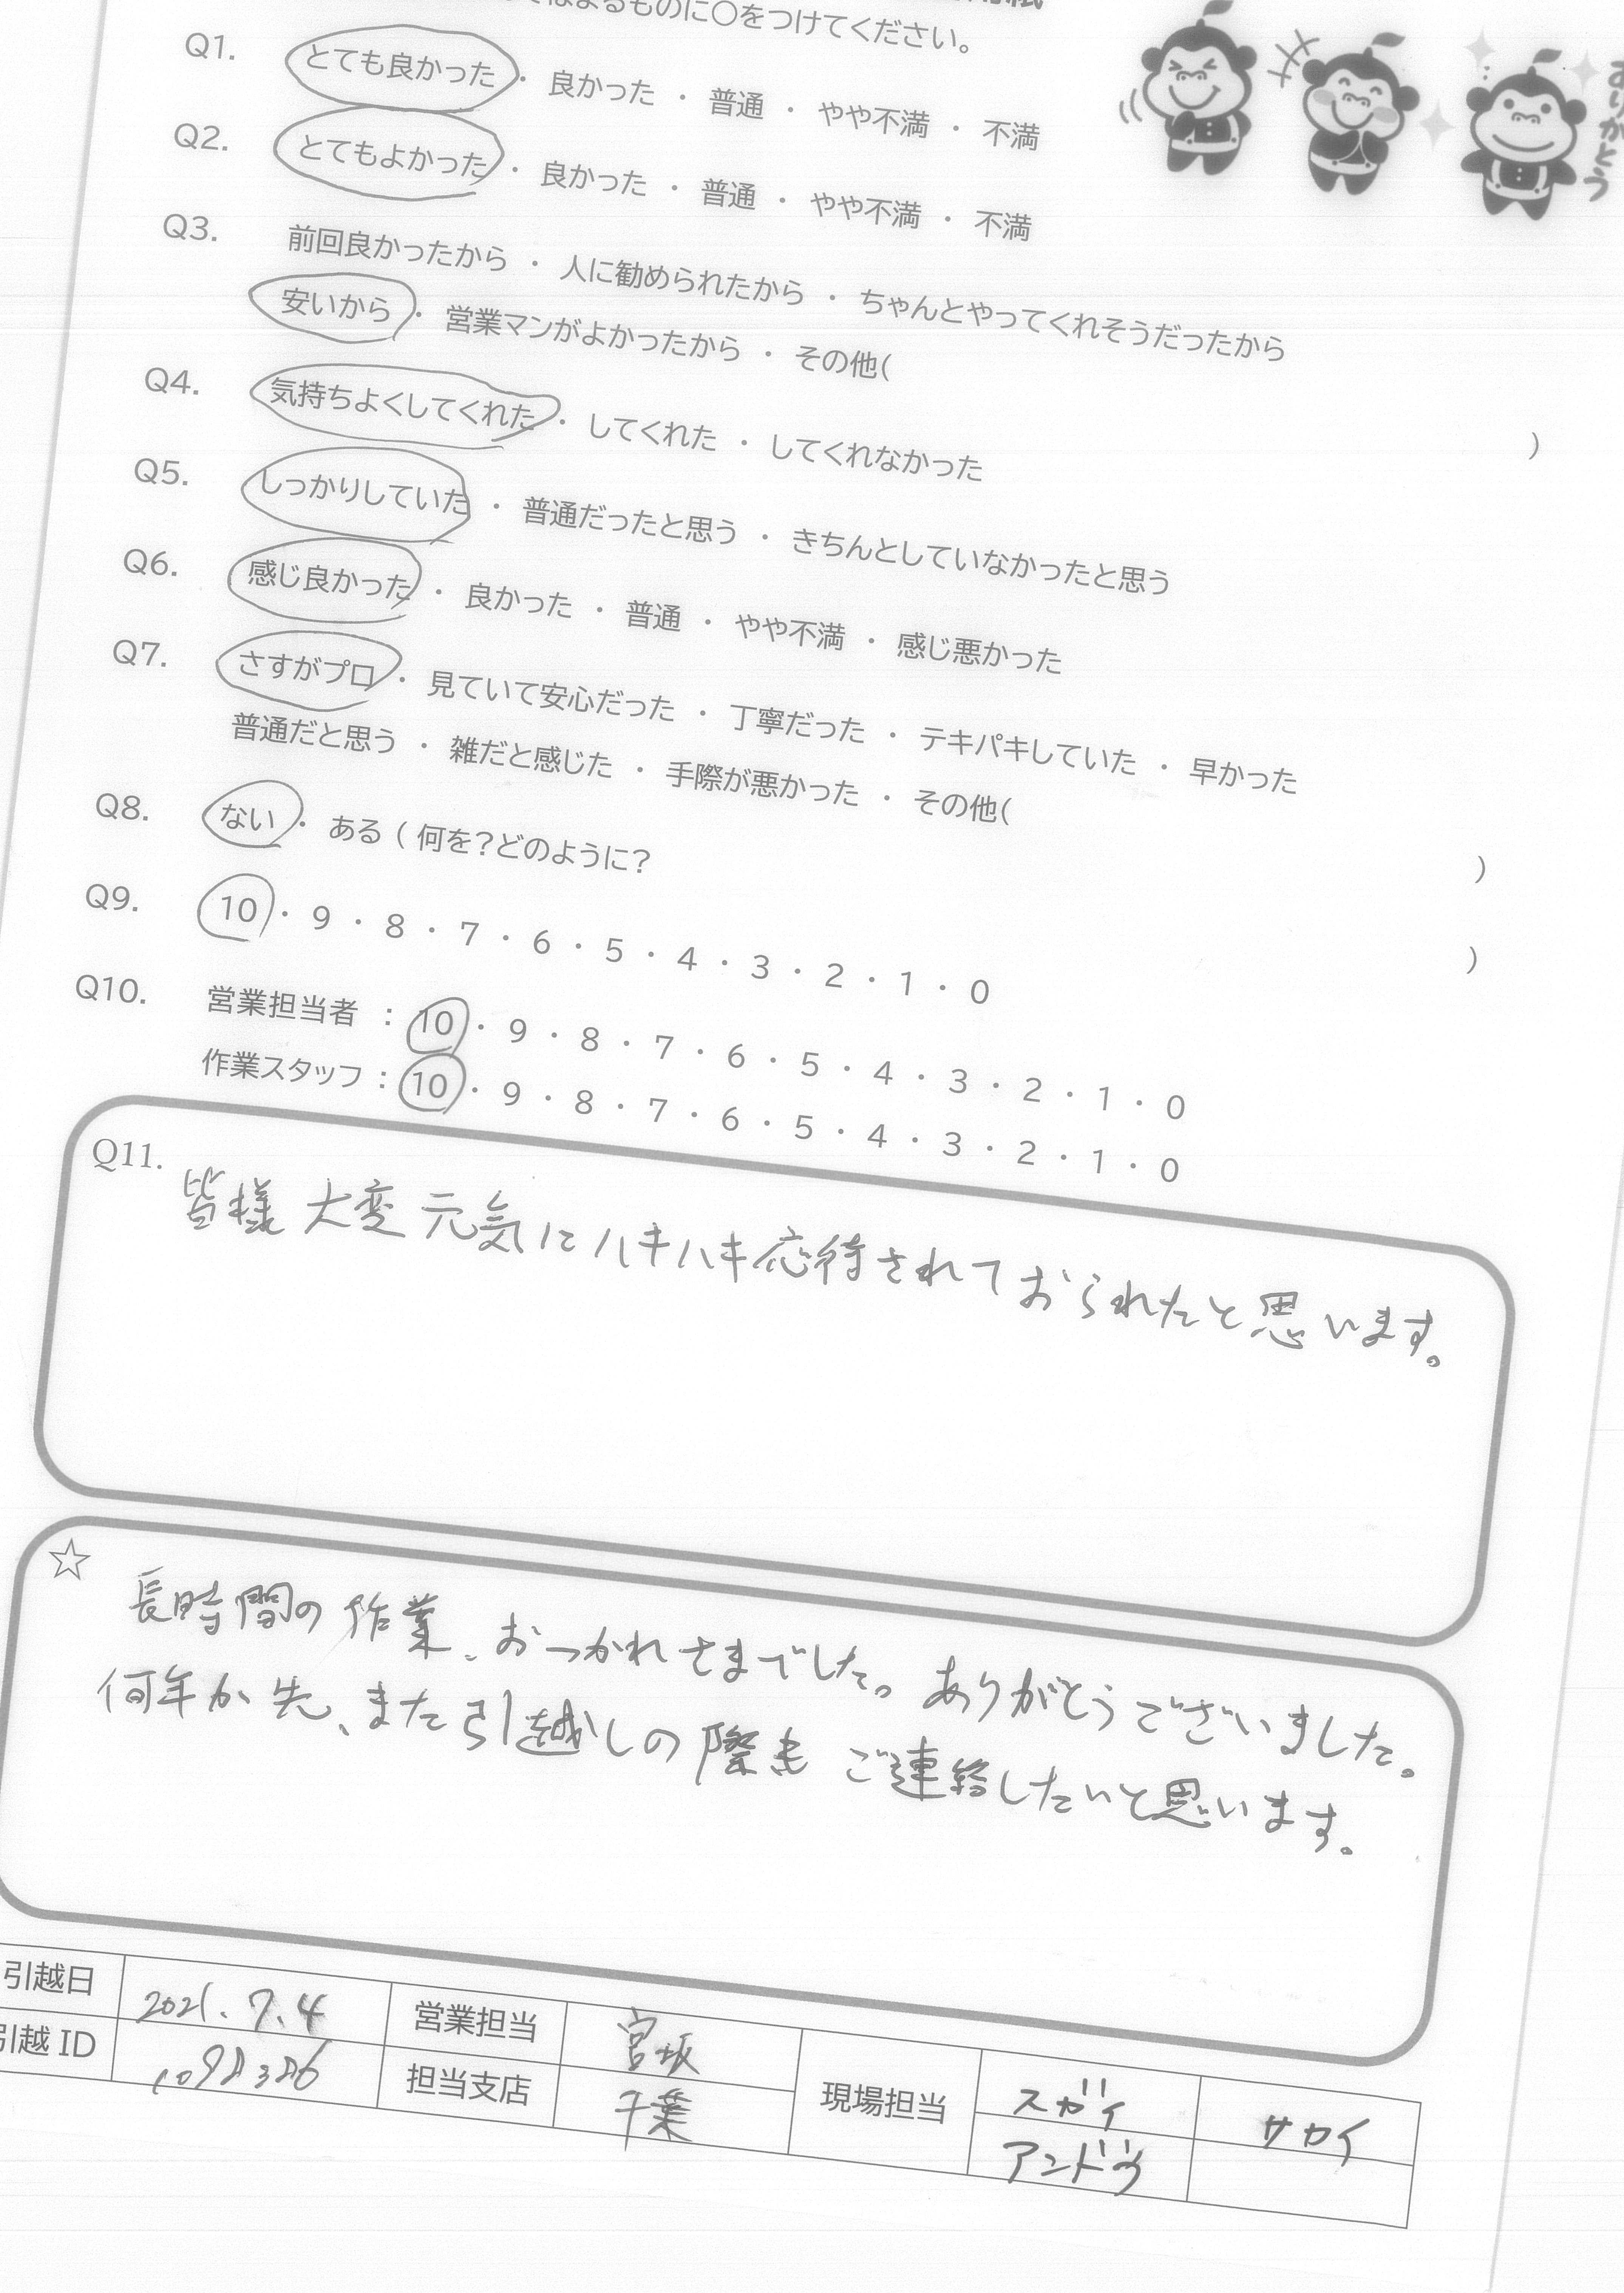 はまるものに〇をつけてください。
ありがとう
Q1. とても良かった ・ 良かった ・ 普通 ・ やや不満 ・ 不満
Q2. とてもよかった ・ 良かった ・ 普通 ・ やや不満 ・ 不満
Q3. 前回良かったから ・ 人に勧められたから ・ ちゃんとやってくれそうだったから
安いから ・ 営業マンがよかったから ・ その他( )
Q4. 気持ちよくしてくれた ・ してくれた ・ してくれなかった
Q5. しっかりしていた ・ 普通だったと思う ・ きちんとしていなかったと思う
Q6. 感じ良かった ・ 良かった ・ 普通 ・ やや不満 ・ 感じ悪かった
Q7. さすがプロ ・ 見ていて安心だった ・ 丁寧だった ・ テキパキしていた ・ 早かった
普通だと思う ・ 雑だと感じた ・ 手際が悪かった ・ その他( )
Q8. ない ・ ある ( 何を?どのように? )
Q9. 10 ・ 9 ・ 8 ・ 7 ・ 6 ・ 5 ・ 4 ・ 3 ・ 2 ・ 1 ・ 0
Q10. 営業担当者 : 10 ・ 9 ・ 8 ・ 7 ・ 6 ・ 5 ・ 4 ・ 3 ・ 2 ・ 1 ・ 0
作業スタッフ : 10 ・ 9 ・ 8 ・ 7 ・ 6 ・ 5 ・ 4 ・ 3 ・ 2 ・ 1 ・ 0
Q11. 皆様 大変 元気に ハキハキ応待されて おられたと思います。
☆ 長時間の作業、おつかれさまでした。ありがとうございました。
何年か先、また引越しの際も ご連絡したいと思います。
引越日 2021.7.4 営業担当 宮坂 現場担当 スガイ サカイ
引越 ID 担当支店 千葉 アンドウ